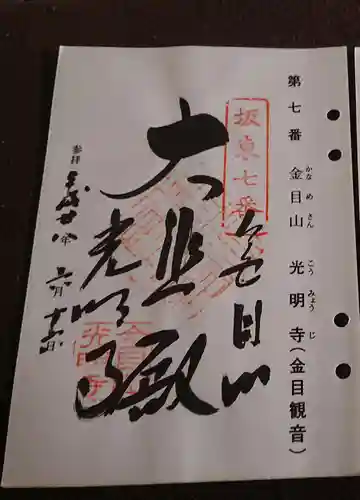 第七番 金目山 光明寺(金目観音)
かなめさん こうみょうじ
坂東七番
金目山
大悲殿
光明寺
参拝 平成廿八年 六月